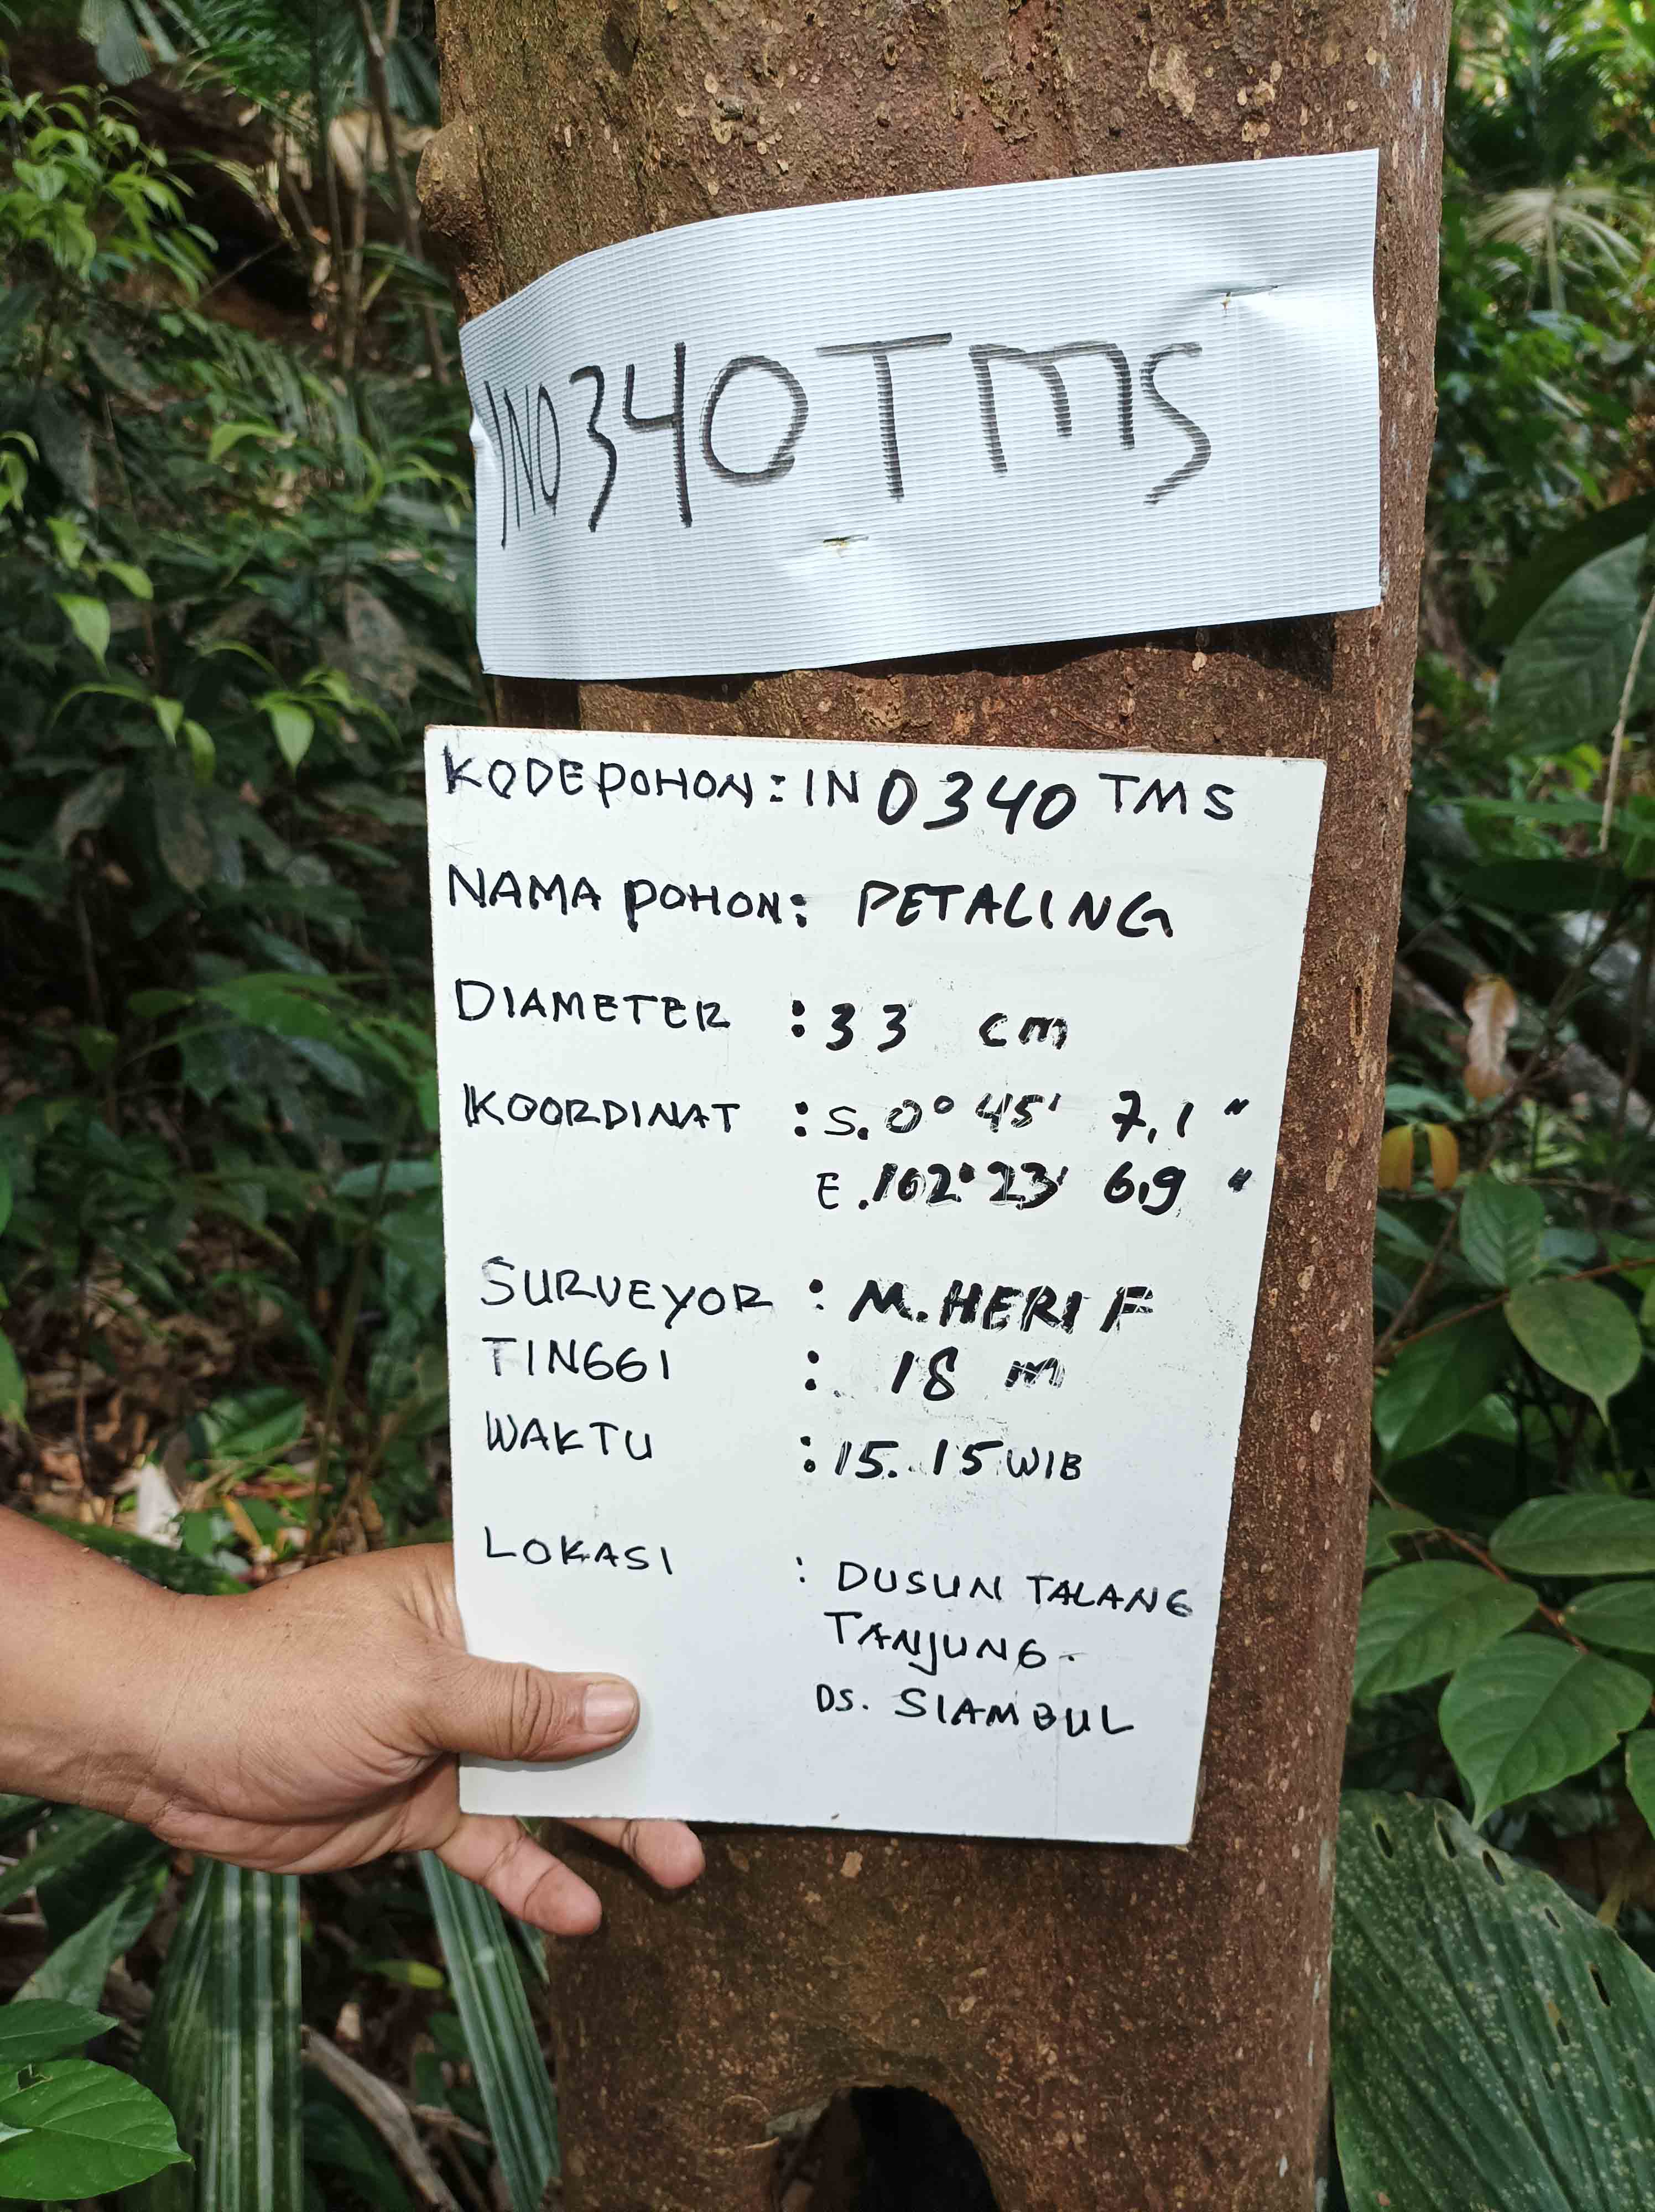 IN0340TMS
KODE POHON : IN 0340 TMS
NAMA POHON : PETALING
DIAMETER : 33 cm
KOORDINAT : S. 0° 45' 7,1 "
E. 102° 23' 6,9 "
SURVEYOR : M. HERI F
TINGGI : 18 m
WAKTU : 15.15 WIB
LOKASI : DUSUN TALANG
TANJUNG.
DS. SIAMBUL